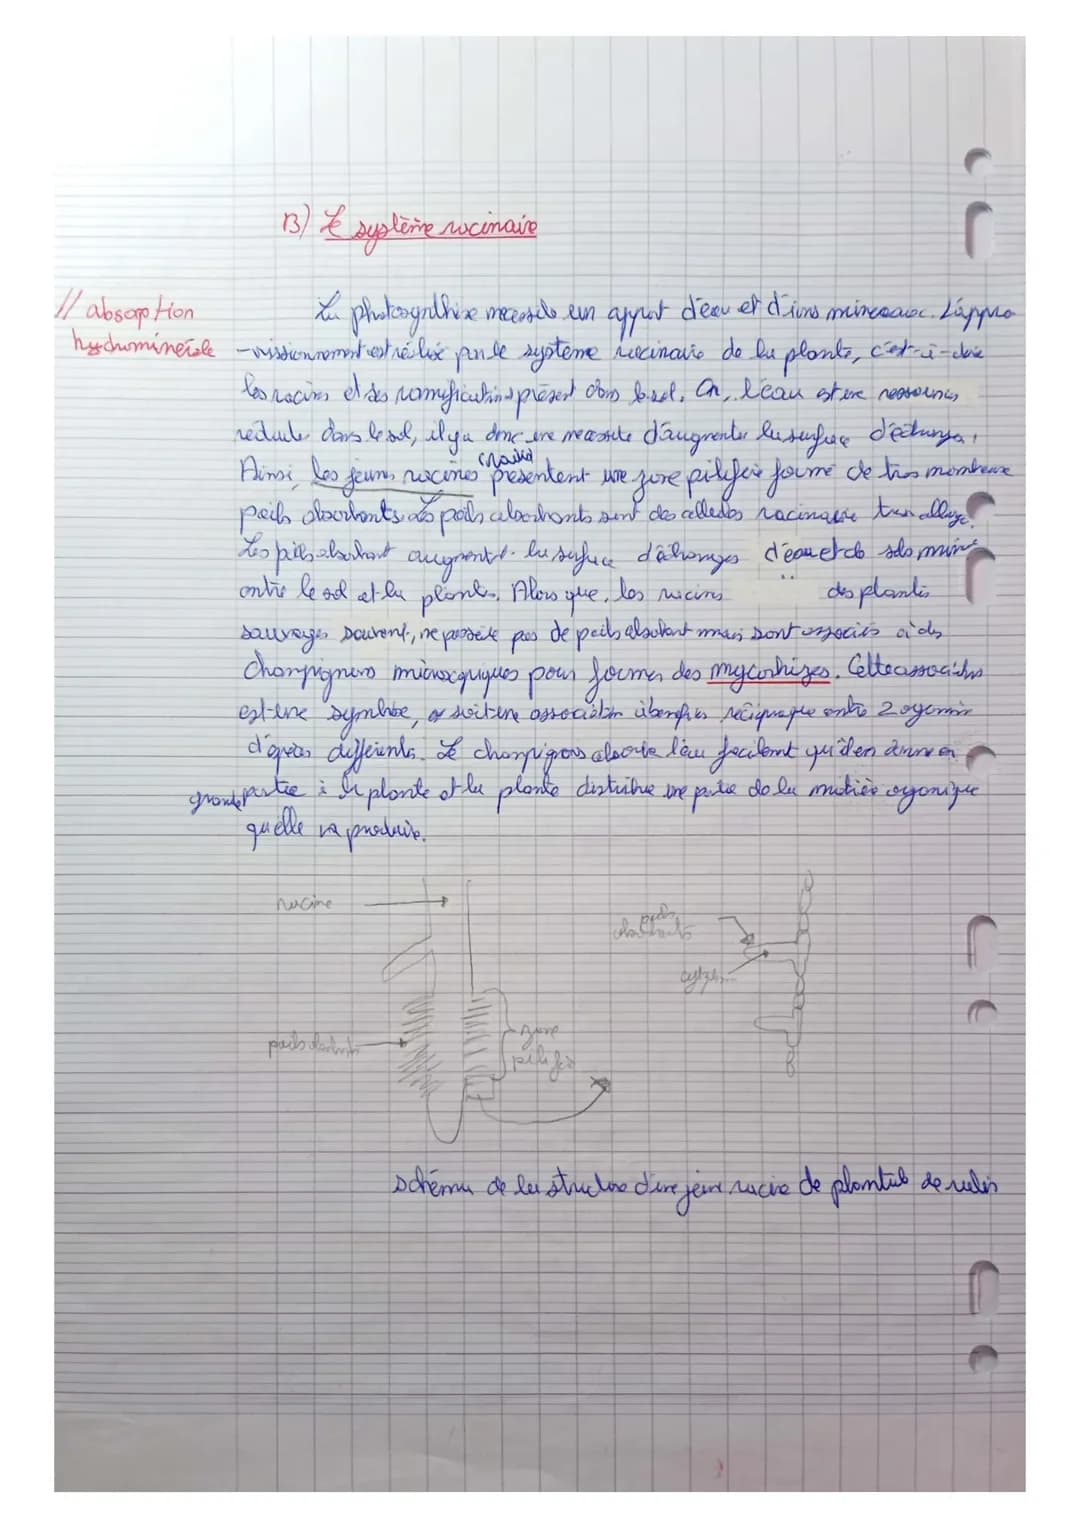 B) Le système racinaire
// absorption
hydrominérale
La photosynthèse necessite un apport d'eau et d'ions mineraux. L'appro
-vissionnement est réalisé par le système racinaire de la plante, c'est-à-dire
les racines et ses ramifications présent dans le sol. Or, l'eau est une ressources
réduite dans le sol, il y a donc une necessite d'augmenter la surface d'échanges,
Ainsi, les jeunes racines présentent une zone pilifère formé de tres nombreuse
poils absorbants. Les poils absorbants sont des cellules racinaire tres allongé
Les poils absorbant augmente la surface d'échanges d'eau et de sels miné
entre le sol et la plante. Alors que, les racines des plantes
sauvages souvent, ne possède pas de poils absorbant mais sont associés à des
champignons microscopiques pour former des mycorhizes. Cette association
est une symbiose, soit une association à bénéfices réciproque entre 2 organismes
d'espèces différentes. Le champignons absorbe l'eau facilement qu'il en donne en
grande partie à la plante et la plante distribue une partie de la matière organique
qu'elle va produire.
racine
poils absorbants
poils absorbants
zone
pilifère
schéma de la structure d'une jeune racine de plantule de radis